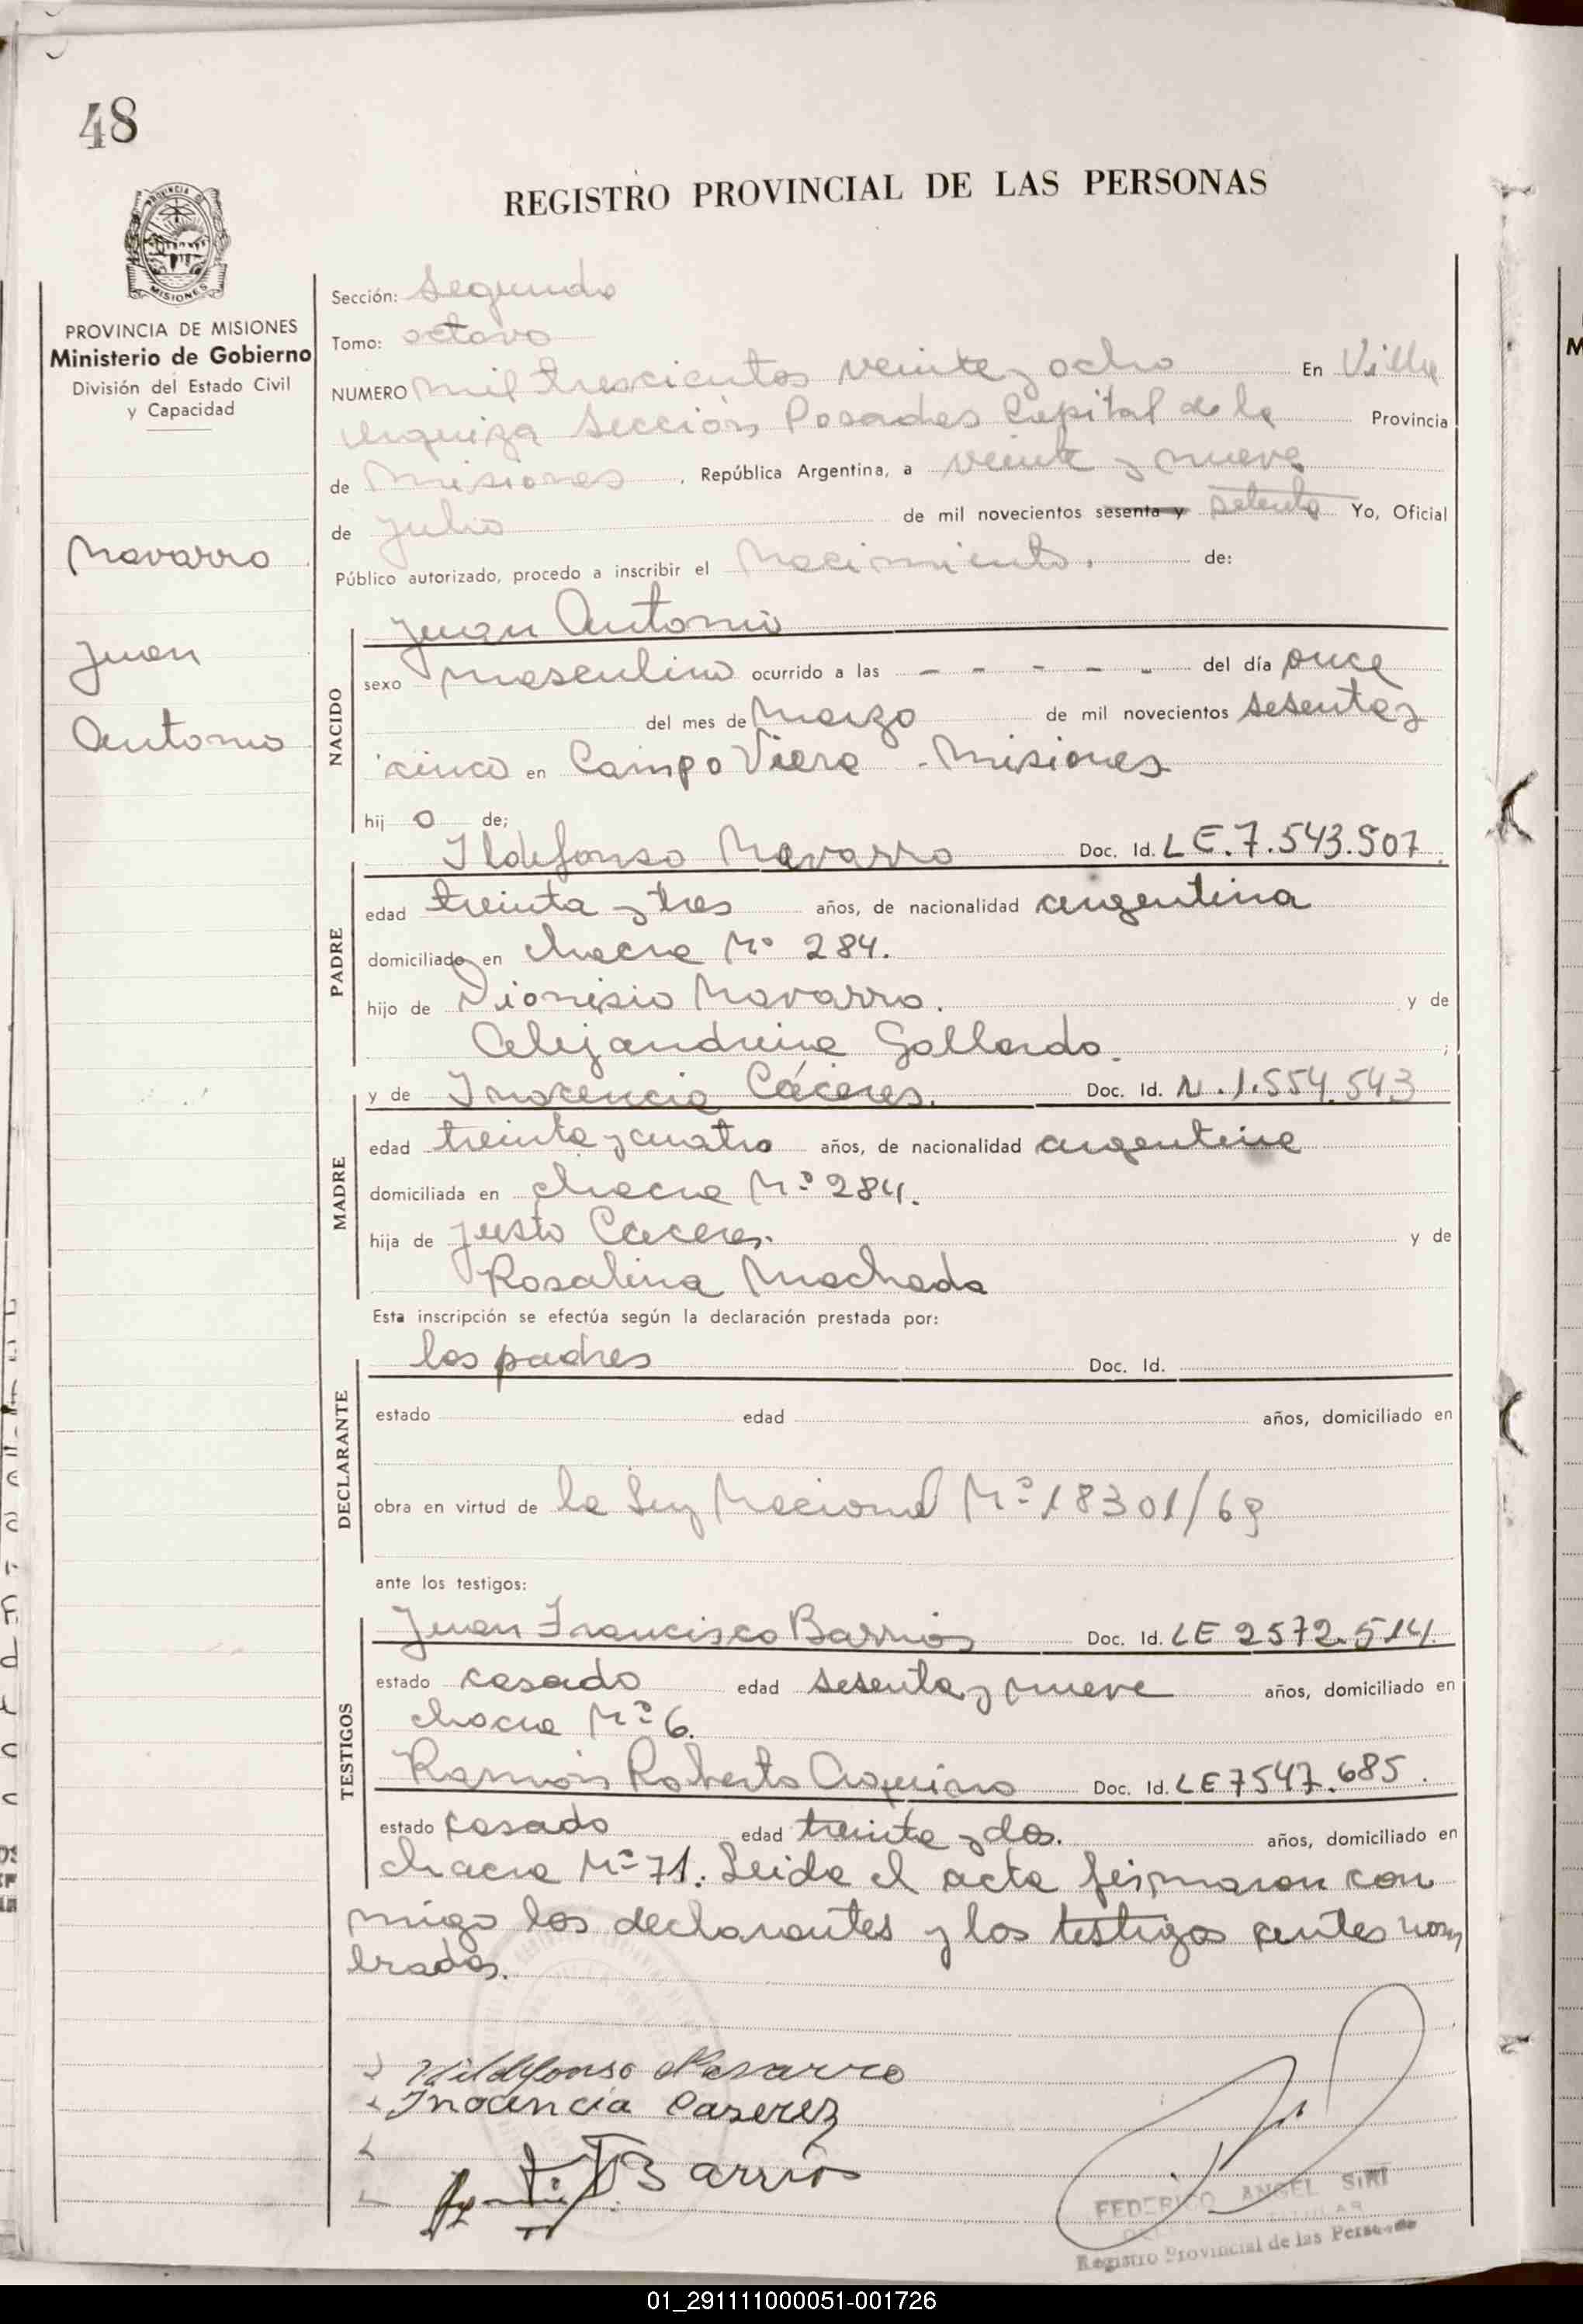 48
REGISTRO PROVINCIAL DE LAS PERSONAS
PROVINCIA DE MISIONES
Ministerio de Gobierno
División del Estado Civil
y Capacidad
Navarro
Juan
Antonio
Sección: Segunda
Tomo: octavo
NUMERO mil trescientos veinte y ocho En Villa
Urquiza Sección Posadas Capital de la Provincia
de Misiones, República Argentina, a veinte y nueve
de julio de mil novecientos sesenta y setenta Yo, Oficial
Público autorizado, procedo a inscribir el Nacimiento. de:
NACIDO
Juan Antonio
sexo masculino ocurrido a las - - - - - del día once
del mes de Marzo de mil novecientos sesenta y
cinco en Campo Viera - Misiones
hij o de;
PADRE
Ildefonso Navarro Doc. Id. LE.7.543.507.
edad treinta y tres años, de nacionalidad argentina
domiciliado en chacra Nº 284.
hijo de Dionisio Navarro. y de
Alejandrina Gallardo. ;
MADRE
y de Inocencia Cáceres. Doc. Id. N.1.554.543
edad treinta y cuatro años, de nacionalidad argentina
domiciliada en chacra Nº 284.
hija de Justo Caceres. y de
Rosalina Machado
Esta inscripción se efectúa según la declaración prestada por:
DECLARANTE
los padres Doc. Id.
estado edad años, domiciliado en
obra en virtud de la Ley Nacional Nº 18301/69
ante los testigos:
TESTIGOS
Juan Francisco Barrios Doc. Id. LE 2572.514.
estado casado edad sesenta y nueve años, domiciliado en
chacra Nº 6.
Ramón Roberto Aquino Doc. Id. LE 7547.685.
estado casado edad treinta y dos. años, domiciliado en
chacra Nº 71. Leida el acta firmaron con
migo los declarantes y los testigos antes nom
brados.
Yildefonso Navarro
Inocencia Caserez
Barrios
FEDERICO ANGEL SIRI
Registro Provincial de las Personas
01_291111000051-001726